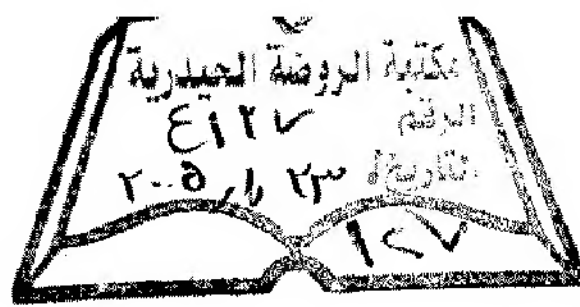 مكتبة الروضة الحيدرية
الرقم ٤١٢٧
التاريخ ٢٣ /١/ ٢٠٠٥
١٢٧